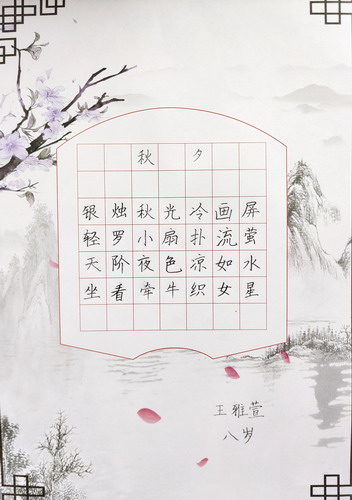 秋夕
银烛秋光冷画屏
轻罗小扇扑流萤
天阶夜色凉如水
坐看牵牛织女星
王雅萱
八岁